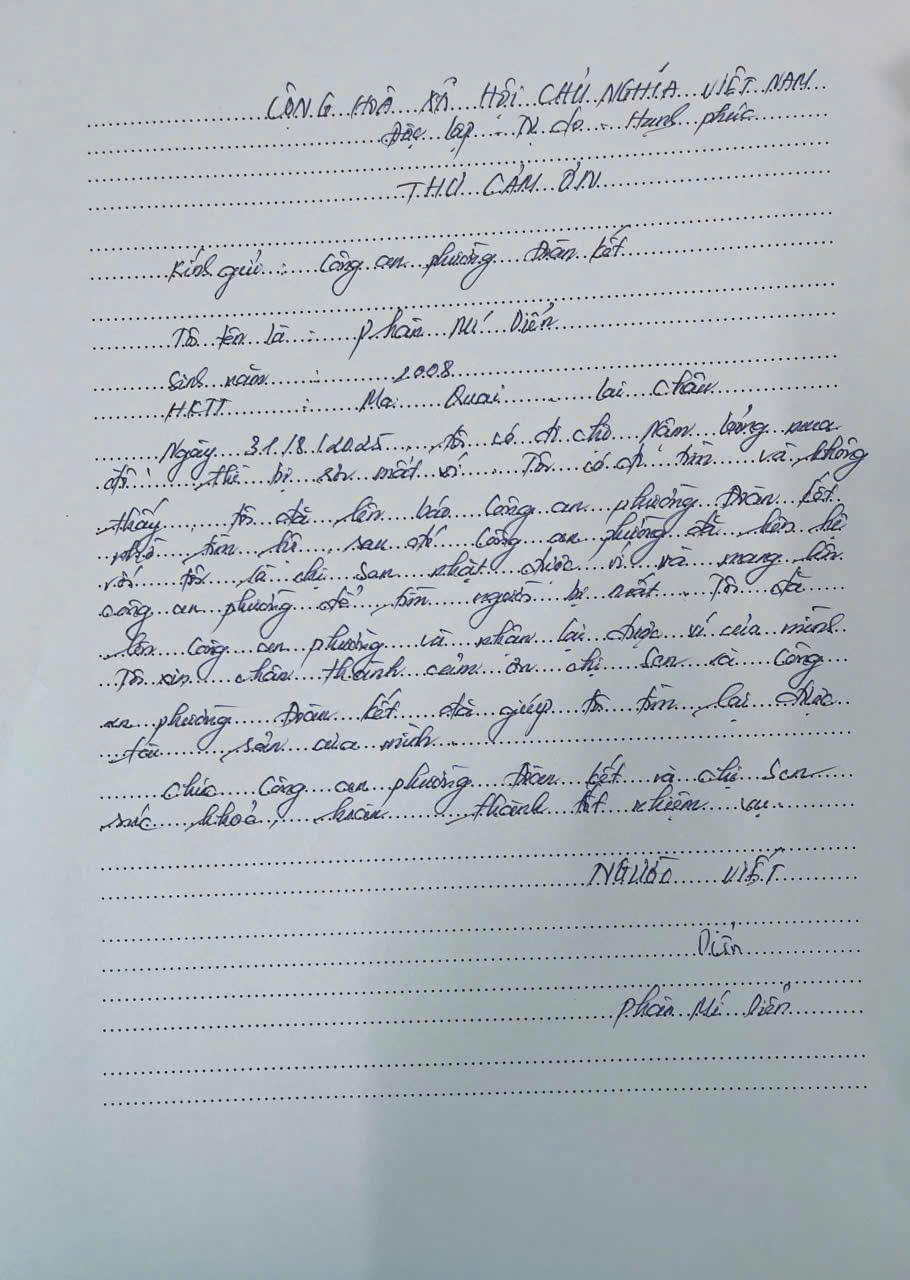 CỘNG HOÀ XÃ HỘI CHỦ NGHĨA VIỆT NAM
Độc lập - Tự do - Hạnh phúc
THƯ CẢM ƠN
Kính gửi : Công an phường Đoàn kết
Tôi tên là : Phàn Mí Diển
Sinh năm : 2008
HKTT : Ma Quai - lai châu
Ngày 31/8/2025, tôi có đi chợ nậm loỏng mua
đồ thì bị rơi mất ví. Tôi có đi tìm và không
thấy, tôi đã lên báo Công an phường Đoàn kết
nhờ tìm hộ, sau đó Công an phường đã liên hệ
với tôi là chị San nhặt được ví và mang lên
công an phường để tìm người bị mất. Tôi đã
lên Công an phường và nhận lại được ví của mình
Tôi xin chân thành cảm ơn chị San và Công
an phường Đoàn kết đã giúp tôi tìm lại được
tài sản của mình.
Chúc Công an phường Đoàn kết và chị San
sức khoẻ, hoàn thành tốt nhiệm vụ
NGƯỜI VIẾT
Diển
Phàn Mí Diển